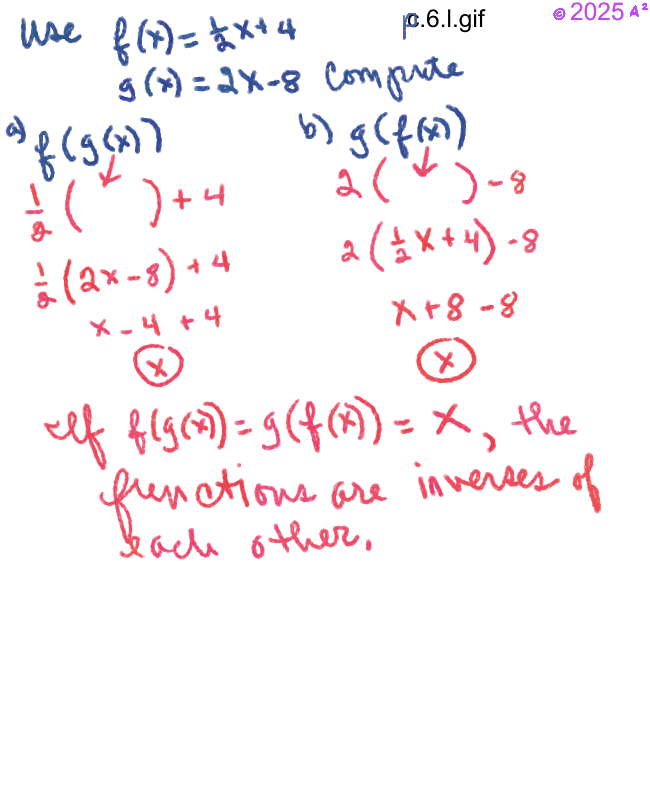 Use f(x) = ½x + 4
p.6.l.gif
© 2025 A²
g(x) = 2x - 8 Compute
a) f(g(x))
½( ) + 4
½(2x - 8) + 4
x - 4 + 4
x
b) g(f(x))
2( ) - 8
2(½x + 4) - 8
x + 8 - 8
x
If f(g(x)) = g(f(x)) = x, the
functions are inverses of
each other.